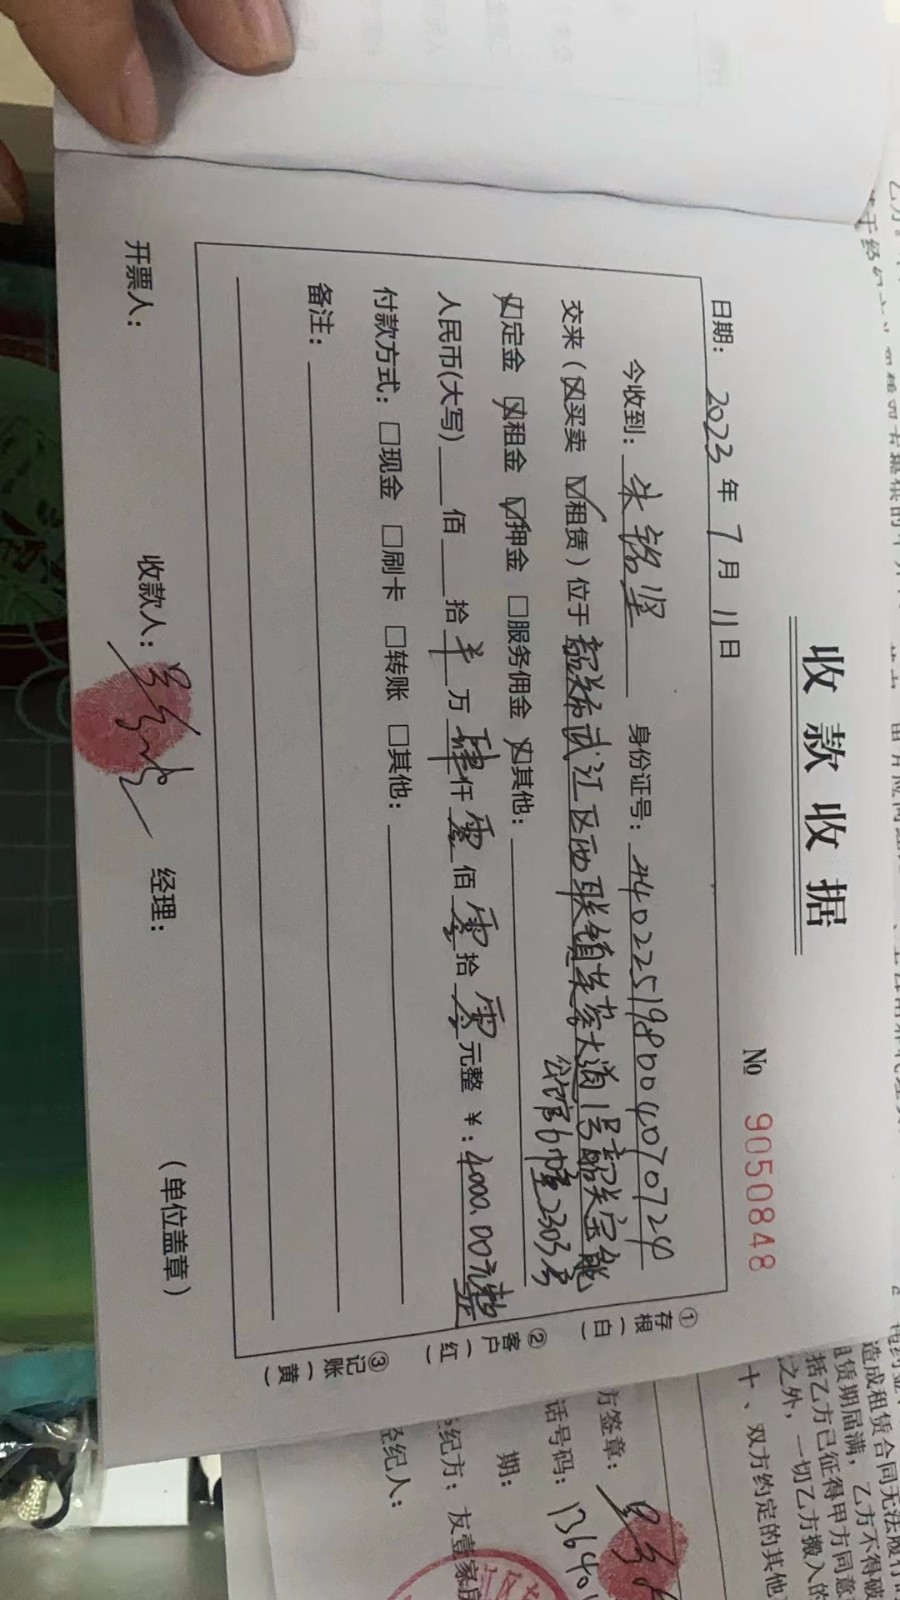 收款收据
№ 9050848
日期： 2023 年 7 月 11 日
今收到： 朱铭坚 身份证号： 440225198004070724
交来（☒买卖 ☑租赁）位于 韶关市武江区西联镇芙蓉大道1号韶关宝能
公馆6幢2303房
☒定金 ☒租金 ☑押金 □服务佣金 ☒其他：
人民币(大写) 佰 拾 万 肆 仟 零 佰 零 拾 零 元整 ￥：4000.00元整
付款方式：□现金 □刷卡 □转账 □其他：
备注：
开票人： 收款人： 经理： (单位盖章)
①存根（白）
②客户（红）
③记账（黄）
造成租赁合同无法履行
租赁期届满，乙方不得破
括乙方已征得甲方同意
之外，一切乙方搬入的
十、双方约定的其他
方签章：
话号码： 13640
期：
经纪方：友壹家房
经纪人：